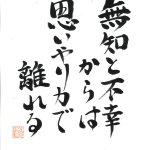 無知と不幸
からは
思いやり力で
離れる